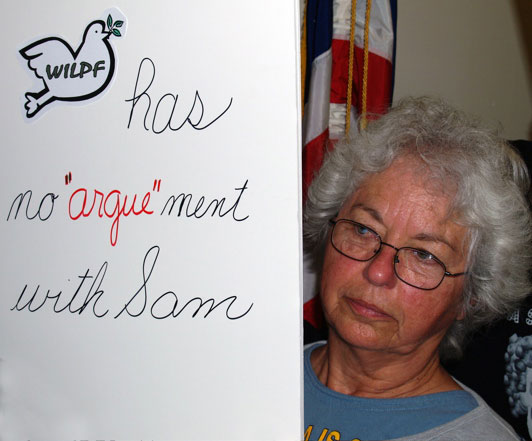 WILPF
has
no "argue"ment
with Sam